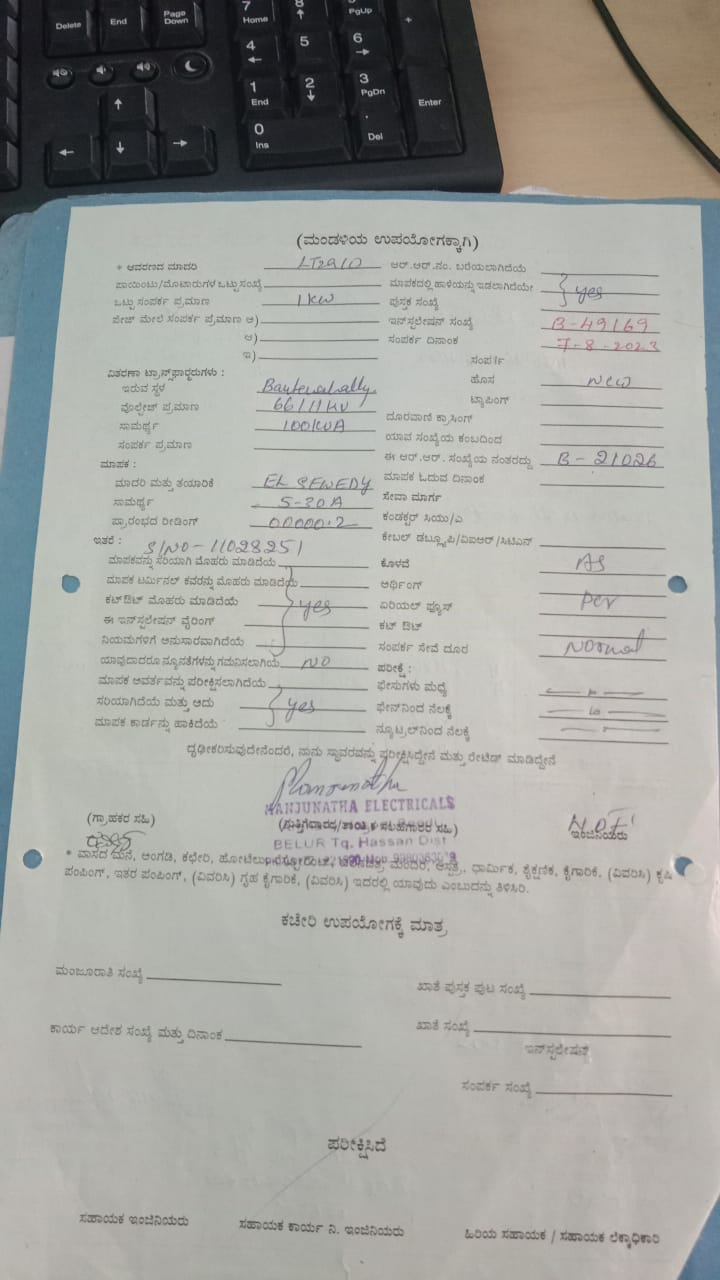 Delete End Page Down 7 Home 8 PgUp +
4 5 6
1 End 2 3 PgDn Enter
0 Ins . Del
(ಮಂಡಳಿಯ ಉಪಯೋಗಕ್ಕಾಗಿ)
* ಆವರಣದ ಮಾದರಿ ಆರ್.ಆರ್.ನಂ. ಬರೆಯಲಾಗಿದೆಯೆ
ಪಾಯಿಂಟು/ಮೋಟಾರುಗಳ ಒಟ್ಟುಸಂಖ್ಯೆ ಮಾಪಕದಲ್ಲಿ ಹಾಳೆಯನ್ನು ಇಡಲಾಗಿದೆಯೇ yes
ಒಟ್ಟು ಸಂಪರ್ಕ ಪ್ರಮಾಣ 1 KW ಪುಸ್ತಕ ಸಂಖ್ಯೆ
ಪೇಜ್ ಮೇಲೆ ಸಂಪರ್ಕ ಪ್ರಮಾಣ ಅ) ಇನ್‌ಸ್ಟಲೇಷನ್ ಸಂಖ್ಯೆ B-49169
ಆ) ಸಂಪರ್ಕ ದಿನಾಂಕ 7-8-2023
ಇ) ಸಂಪರ್ಕ
ವಿತರಣಾ ಟ್ರಾನ್ಸ್‌ಫಾರ್ಮರುಗಳು : ಹೊಸ New
ಇರುವ ಸ್ಥಳ ಟ್ಯಾಪಿಂಗ್
ವೊಲ್ಟೇಜ್ ಪ್ರಮಾಣ 66/11 KV ದೂರವಾಣಿ ಕ್ರಾಸಿಂಗ್
ಸಾಮರ್ಥ್ಯ 100KVA ಯಾವ ಸಂಖ್ಯೆಯ ಕಂಬದಿಂದ
ಸಂಪರ್ಕ ಪ್ರಮಾಣ ಈ ಆರ್.ಆರ್. ಸಂಖ್ಯೆಯ ನಂತರದ್ದು B-21026
ಮಾಪಕ : ಮಾಪಕ ಓದುವ ದಿನಾಂಕ
ಮಾದರಿ ಮತ್ತು ತಯಾರಿಕೆ EL SEWEDY ಸೇವಾ ಮಾರ್ಗ
ಸಾಮರ್ಥ್ಯ 5-30A ಕಂಡಕ್ಟರ್ ಸಿಯು/ಎ
ಪ್ರಾರಂಭದ ರೀಡಿಂಗ್ 00000.2 ಕೇಬಲ್ ಡಬ್ಲ್ಯೂಪಿ/ವಿಐಆರ್/ಸಿಟಿಎಸ್
ಇತರೆ : S/NO-11028251
ಮಾಪಕವನ್ನು ಸರಿಯಾಗಿ ಮೊಹರು ಮಾಡಿದೆಯೆ ಕೊಳವೆ As
ಮಾಪಕ ಟರ್ಮಿನಲ್ ಕವರನ್ನು ಮೊಹರು ಮಾಡಿದೆಯೆ ಅರ್ಥಿಂಗ್
ಕಟ್‌ಔಟ್ ಮೊಹರು ಮಾಡಿದೆಯೆ yes ಏರಿಯಲ್ ಫ್ಯೂಸ್ per
ಈ ಇನ್‌ಸ್ಟಲೇಷನ್ ವೈರಿಂಗ್ ಕಟ್ ಔಟ್
ನಿಯಮಗಳಿಗೆ ಅನುಸಾರವಾಗಿದೆಯೆ ಸಂಪರ್ಕ ಸೇವೆ ದೂರ Normal
ಯಾವುದಾದರೂ ನ್ಯೂನತೆಗಳನ್ನು ಗಮನಿಸಲಾಗಿಯೆ NO ಪರೀಕ್ಷೆ :
ಮಾಪಕ ಆವರ್ತವನ್ನು ಪರೀಕ್ಷಿಸಲಾಗಿದೆಯೆ ಫೇಸುಗಳು ಮಧ್ಯೆ
ಸರಿಯಾಗಿದೆಯೆ ಮತ್ತು ಅದು yes ಫೇಸ್‌ನಿಂದ ನೆಲಕ್ಕೆ
ಮಾಪಕ ಕಾರ್ಡನ್ನು ಹಾಕಿದೆಯೆ ನ್ಯೂಟ್ರಲ್‌ನಿಂದ ನೆಲಕ್ಕೆ
ದೃಢೀಕರಿಸುವುದೇನೆಂದರೆ, ನಾನು ಸ್ಥಾವರವನ್ನು ಪರೀಕ್ಷಿಸಿದ್ದೇನೆ ಮತ್ತು ರೇಟಿಡ್ ಮಾಡಿದ್ದೇನೆ
Manjunatha
MANJUNATHA ELECTRICALS
(ಗ್ರಾಹಕರ ಸಹಿ) (ಗುತ್ತಿಗೆದಾರರ/ತಾಂತ್ರಿಕ ಸಲಹೆಗಾರರ ಸಹಿ) ಇಂಜಿನಿಯರು
BELUR Tq. Hassan Dist
* ವಾಸದ ಮನೆ, ಅಂಗಡಿ, ಕಛೇರಿ, ಹೋಟೆಲು, ಮಂದಿರ, ಆಸ್ಪತ್ರೆ, ಧಾರ್ಮಿಕ, ಶೈಕ್ಷಣಿಕ, ಕೈಗಾರಿಕೆ, (ವಿವರಿಸಿ) ಕೃಷಿ
ಪಂಪಿಂಗ್, ಇತರ ಪಂಪಿಂಗ್, (ವಿವರಿಸಿ) ಗೃಹ ಕೈಗಾರಿಕೆ, (ವಿವರಿಸಿ) ಇದರಲ್ಲಿ ಯಾವುದು ಎಂಬುದನ್ನು ತಿಳಿಸಿರಿ.
ಕಚೇರಿ ಉಪಯೋಗಕ್ಕೆ ಮಾತ್ರ
ಮಂಜೂರಾತಿ ಸಂಖ್ಯೆ ಖಾತೆ ಪುಸ್ತಕ ಪುಟ ಸಂಖ್ಯೆ
ಕಾರ್ಯ ಆದೇಶ ಸಂಖ್ಯೆ ಮತ್ತು ದಿನಾಂಕ ಖಾತೆ ಸಂಖ್ಯೆ
ಇನ್‌ಸ್ಟಲೇಷನ್
ಸಂಪರ್ಕ ಸಂಖ್ಯೆ
ಪರೀಕ್ಷಿಸಿದೆ
ಸಹಾಯಕ ಇಂಜಿನಿಯರು ಸಹಾಯಕ ಕಾರ್ಯ ನಿ. ಇಂಜಿನಿಯರು ಹಿರಿಯ ಸಹಾಯಕ / ಸಹಾಯಕ ಲೆಕ್ಕಾಧಿಕಾರಿ